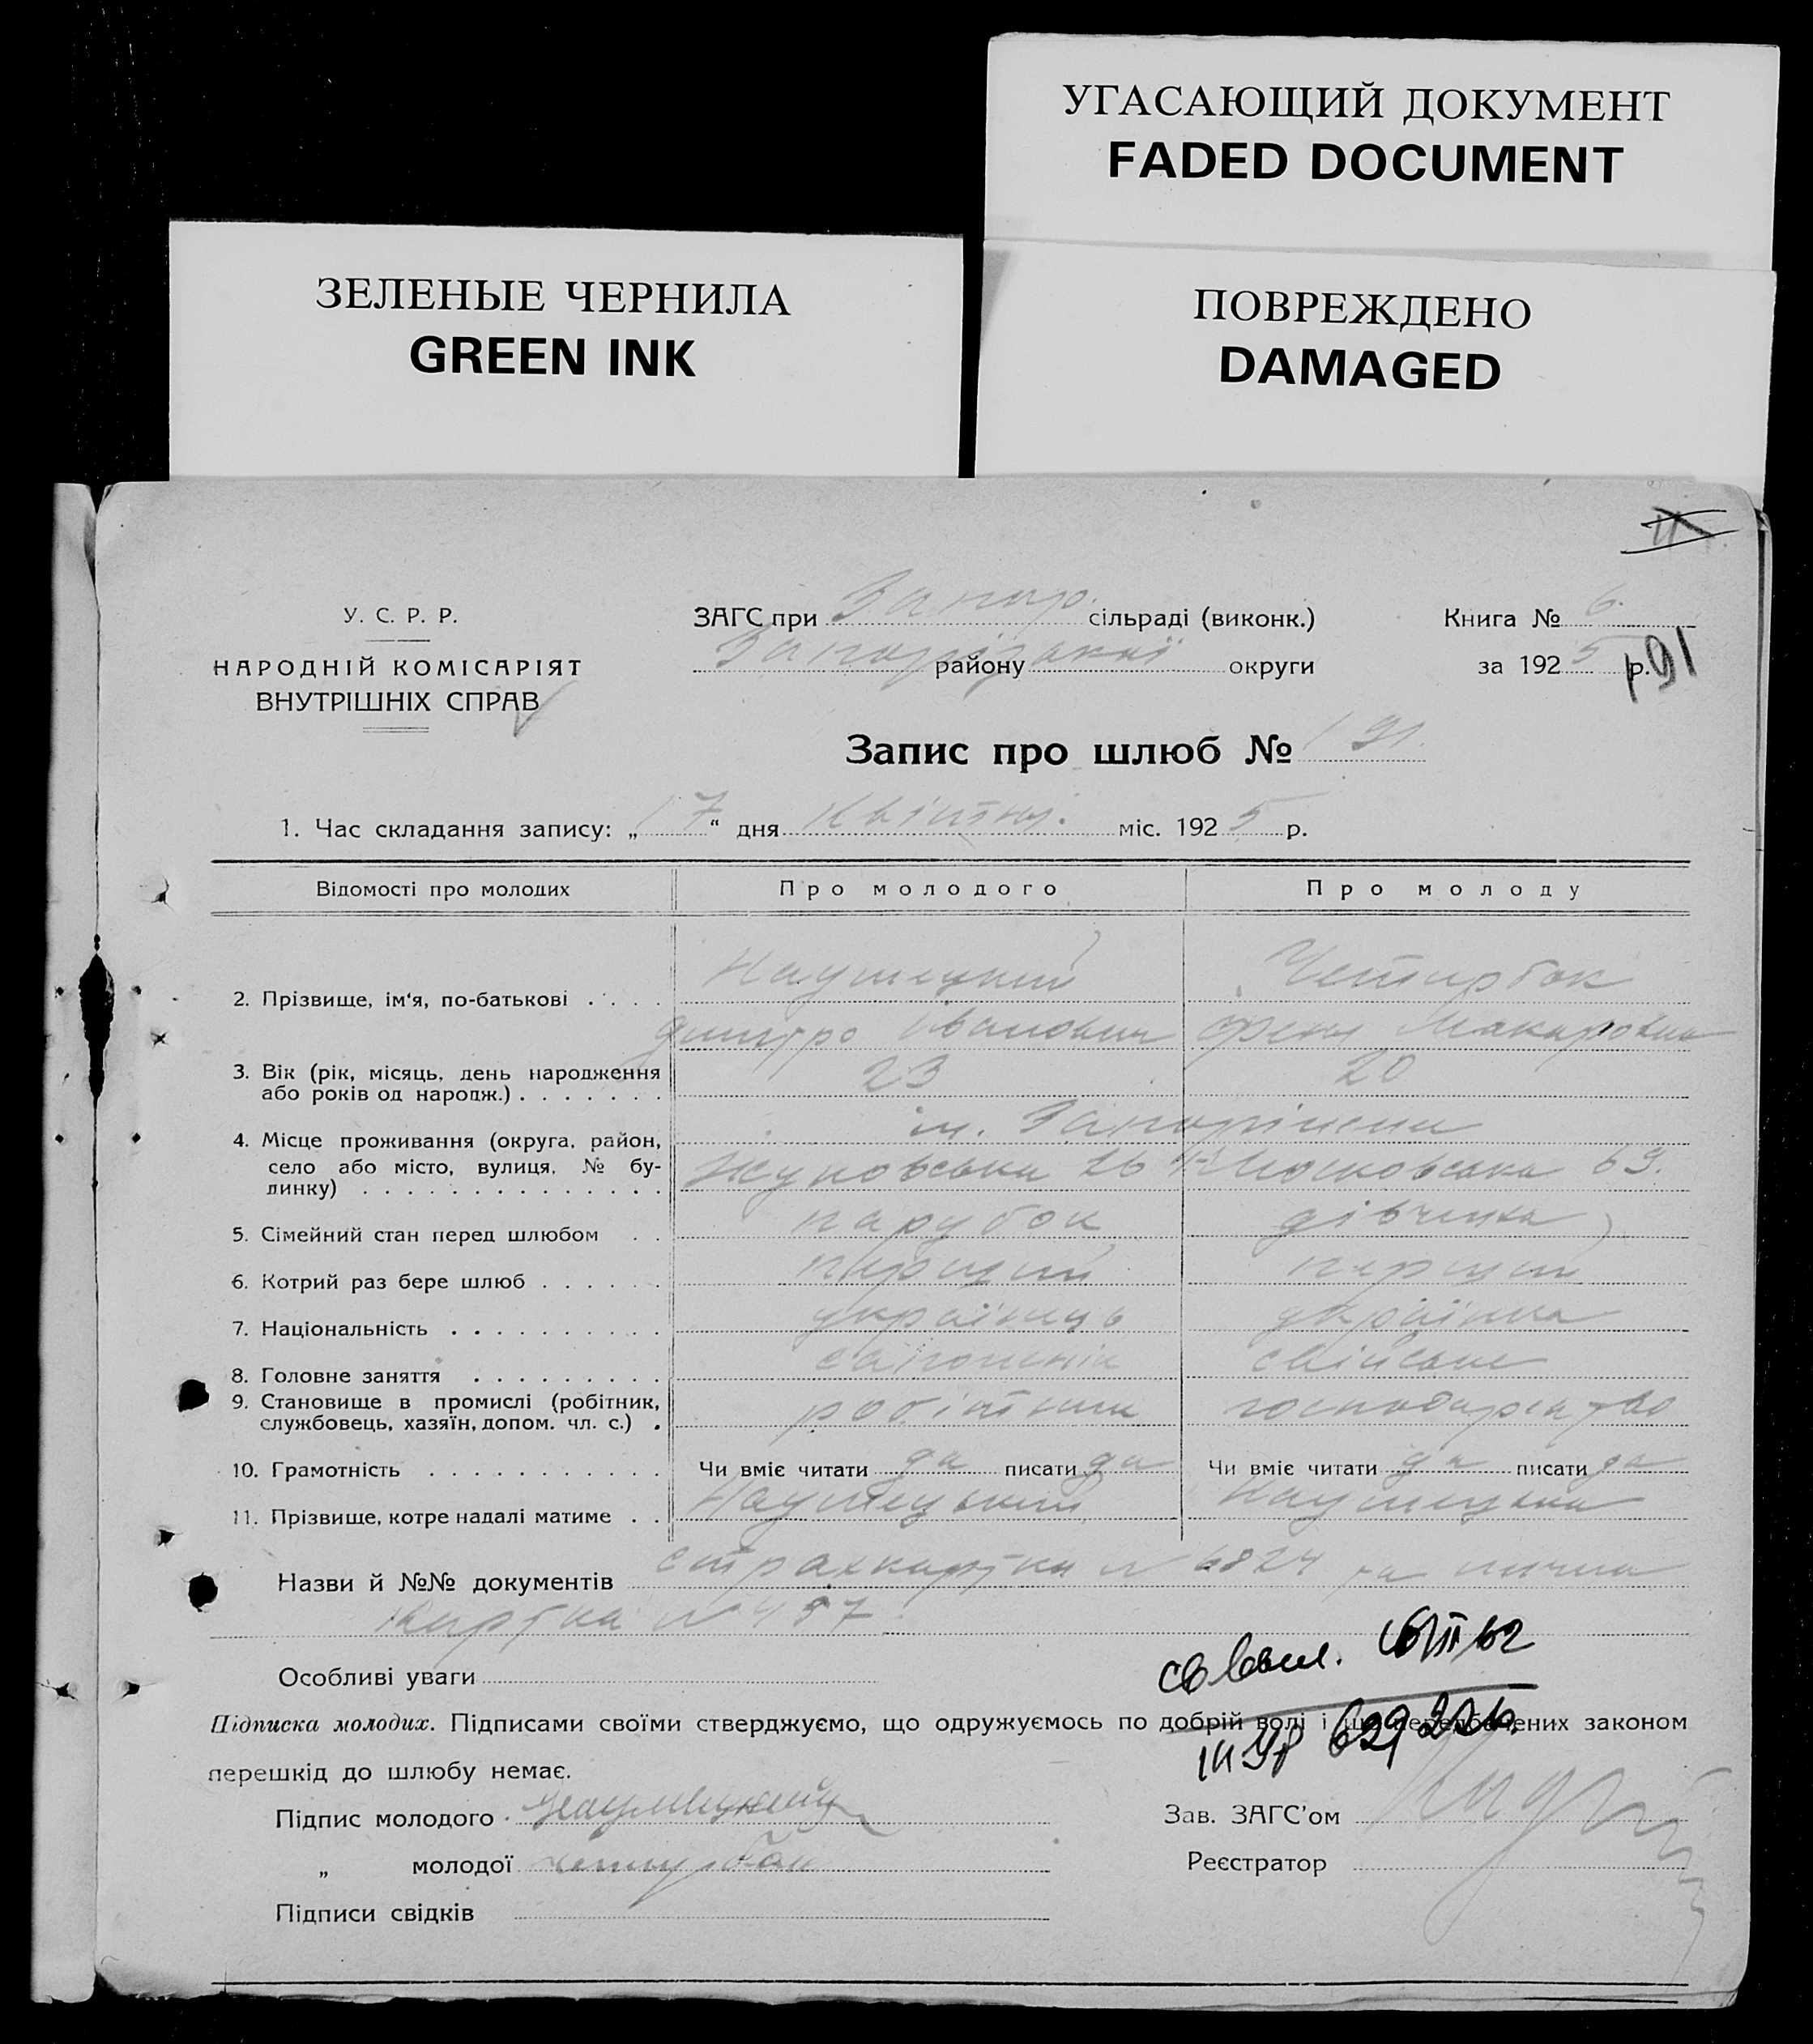 УГАСАЮЩИЙ ДОКУМЕНТ
FADED DOCUMENT
ЗЕЛЕНЫЕ ЧЕРНИЛА
GREEN INK
ПОВРЕЖДЕНО
DAMAGED
У. С. Р. Р.
НАРОДНІЙ КОМІСАРІЯТ
ВНУТРІШНІХ СПРАВ
ЗАГС при Запор. сільраді (виконк.)
Запорізької району округи
Книга № 6.
за 1925 р.
191
Запис про шлюб № 191.
1. Час складання запису: „17“ дня Квітня. міс. 1925 р.
Відомості про молодих Про молодого Про молоду
2. Прізвище, ім‘я, по-батькові
Дмитро Іванович Макаровна
3. Вік (рік, місяць, день народження 23 20
або років од народж.)
4. Місце проживання (округа, район, м. Запоріжжя
село або місто, вулиця, № бу- Жуковська 26 Московська 69.
динку)
5. Сімейний стан перед шлюбом парубок дівчина
6. Котрий раз бере шлюб перший перший
7. Національність українець українка
8. Головне заняття свійське
9. Становище в промислі (робітник, робітник господарство
службовець, хазяїн, допом. чл. с.)
10. Грамотність Чи вміє читати да писати да Чи вміє читати да писати да
11. Прізвище, котре надалі матиме
Назви й №№ документів страхкартка № 6824 та
картка № 457
Особливі уваги
Підписка молодих. Підписами своїми стверджуємо, що одружуємось по добрій волі і що передбачених законом
перешкід до шлюбу немає.
Підпис молодого
„ молодої
Підписи свідків
Зав. ЗАГС’ом
Реєстратор